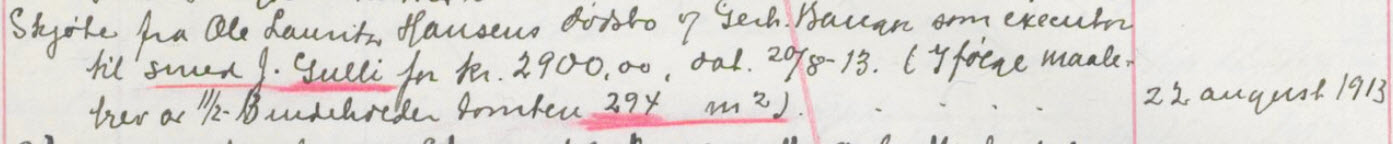 Skjøte fra Ole Lauritz Hansens dødsbo v/ Gerh. som executor
til smed J. Gulli for kr. 2900,00, dat. 20/8-13. (Ifølge maale-
brev av 11/2- tomten 294 m2).
22 august 1913